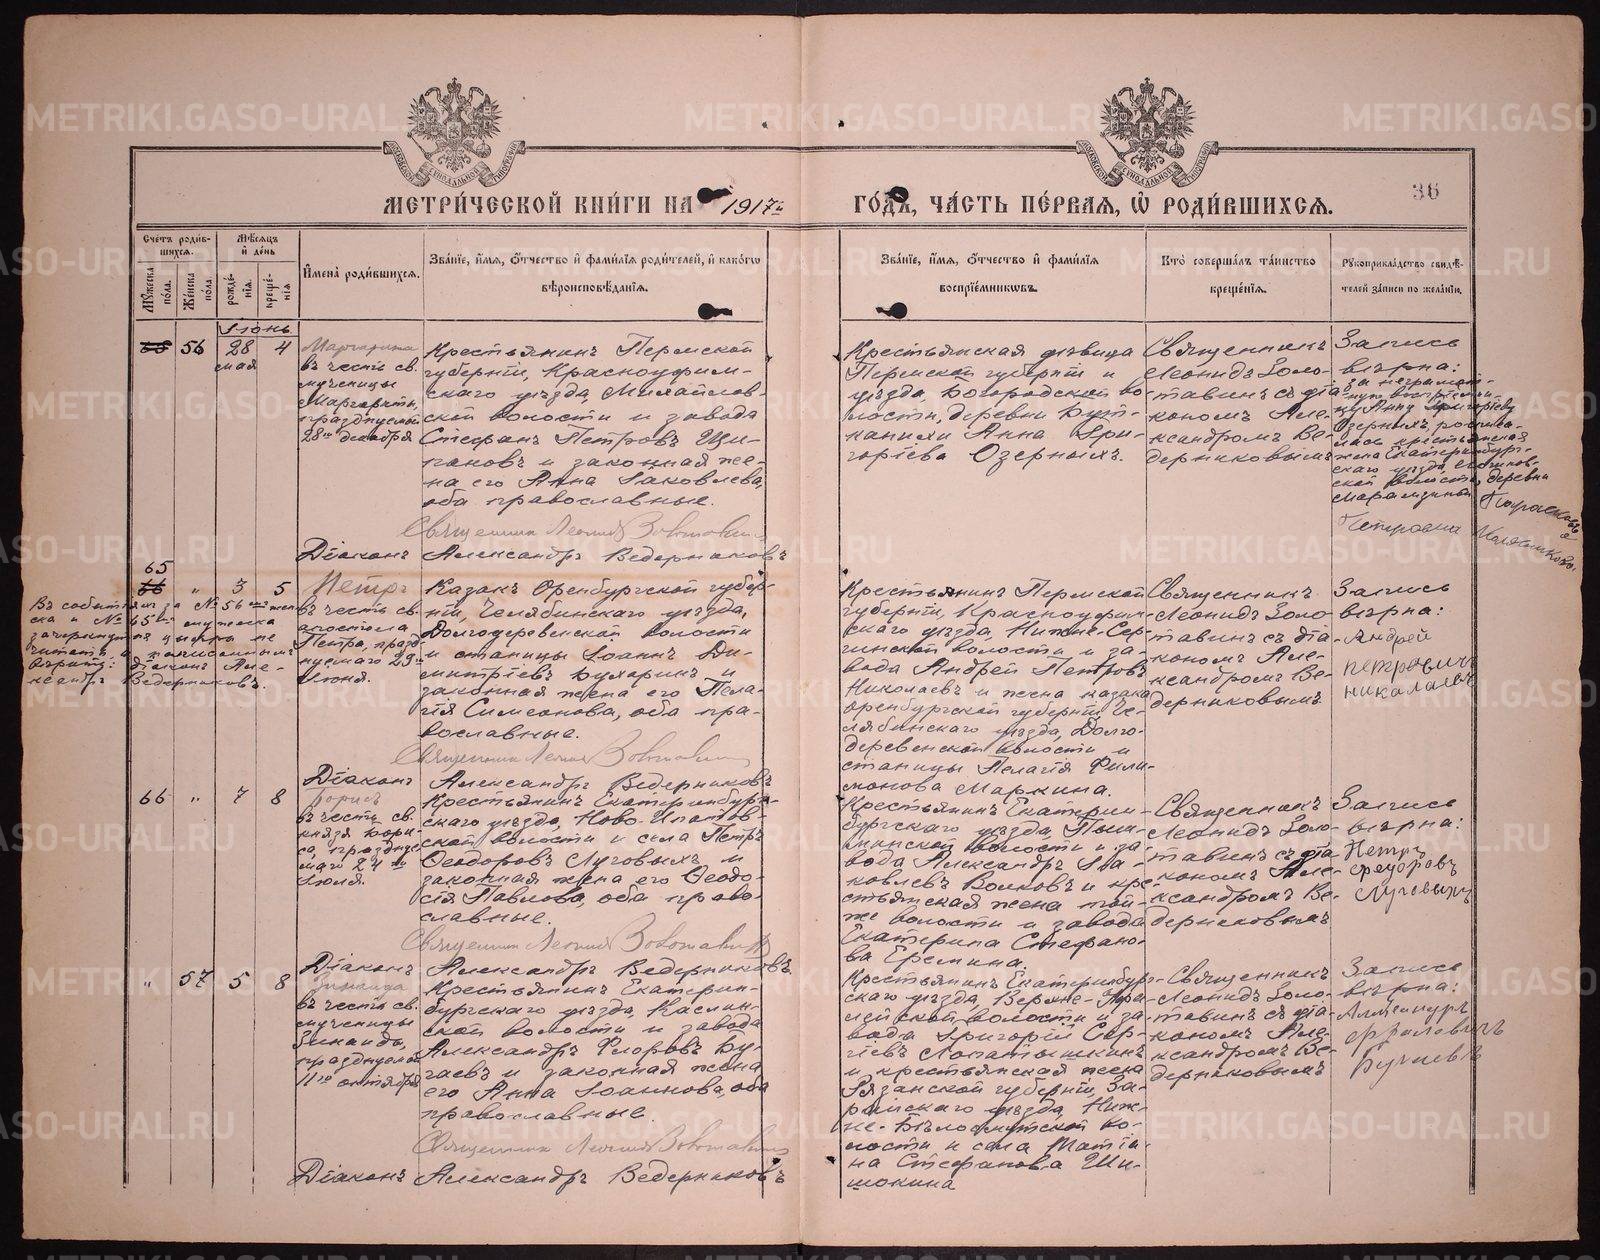 METRIKI.GASO-URAL.RU
36
МЕТРИ́ЧЕСКОЙ КНИ́ГИ НА 1917й
ГО́ДЪ, ЧА́СТЬ ПЕ́РВАЯ, Ѡ РОДИ́ВШИХСЯ.
Сче́тъ роди́в-
шихся.
Мѣ́сяцъ
и҆ де́нь
Му́жеска по́ла.
Же́нска по́ла
рожде́-
нїя.
креще́-
нїя.
И҆мена̀ роди́вшихся.
Зва́нїе, и҆́мя, ѻ҆́тчество и҆ фами́лїя роди́телей, и҆ како́гѡ
вѣроисповѣ́данїя.
Зва́нїе, и҆́мя, ѻ҆́тчество и҆ фами́лїя
воспрїе́мникѡвъ.
Кто̀ соверша́лъ та́инство
креще́нїя.
Рꙋкоприкла́дство свидѣ́-
телей за́писи по жела́нїю.
Іюнь
56 28 4
мая
Маргарита
въ честь св.
мученицы
Маргариты,
празднуемой
28го декабря
Крестьянинъ Пермской
губерніи, Красноуфим-
скаго уѣзда, Михайлов-
ской волости и завода
Стефанъ Петровъ Щи-
пановъ и законная же-
на его Анна Іаковлева,
оба православные.
Священникъ Леонидъ Золотавинъ
Діаконъ Александръ Ведерниковъ
Крестьянская дѣвица
Пермской губерніи и
уѣзда, Богородской во-
лости, деревни Бут-
канихи Анна Гри-
горіева Озерныхъ.
Священникъ
Леонидъ Золо-
тавинъ съ діа-
кономъ Але-
ксандромъ Ве-
дерниковымъ
Запись
вѣрна:
за неграмот-
ную воспріемни-
цу Анну Григоріеву
Озерныхъ, росписа-
лась крестьянская
жена Екатеринбург-
скаго уѣзда,
ской волости, деревни
Петровна
65
66 " 3 5
Петръ
въ честь св.
апостола
Петра, празд-
нуемаго 29го
Іюня.
Казакъ Оренбургской губер-
ніи, Челябинскаго уѣзда,
Долгодеревенской волости
и станицы Іоаннъ Ди-
митріевъ Бухаринъ и
законная жена его Пела-
гія Симеонова, оба пра-
вославные.
Священникъ Леонидъ Золотавинъ
Діаконъ Александръ Ведерниковъ
Въ событіяхъ за № 56 жен-
ска и № 65 мужеска
зачеркнутыя цыфры не
читать, а написаннымъ
вѣрить: діаконъ Але-
ксандръ Ведерниковъ.
Крестьянинъ Пермской
губерніи, Красноуфим-
скаго уѣзда, Нижне-Сер-
гинской волости и за-
вода Андрей Петровъ
Николаевъ и жена казака
Оренбургской губерніи, Че-
лябинскаго уѣзда, Долго-
деревенской волости и
станицы Пелагія Фили-
монова Маркина.
Священникъ
Леонидъ Золо-
тавинъ съ діа-
кономъ Але-
ксандромъ Ве-
дерниковымъ
Запись
вѣрна:
Андрей
петровичъ
николаевъ
66 " 7 8
Борисъ
въ честь св.
князя Бори-
са, праздну-
маго 24го
Іюля.
Крестьянинъ Екатеринбург-
скаго уѣзда, Ново-Ипатов-
ской волости и села Петръ
Ѳеодоровъ Луговыхъ и
законная жена его Ѳеодо-
сія Павлова, оба право-
славные.
Священникъ Леонидъ Золотавинъ
Діаконъ Александръ Ведерниковъ
Крестьянинъ Екатерин-
бургскаго уѣзда, Пыш-
минской волости и за-
вода Александръ Іа-
ковлевъ Волковъ и кре-
стьянская жена той-
же волости и завода
Екатерина Стефано-
ва Еремина.
Священникъ
Леонидъ Золо-
тавинъ съ діа-
кономъ Але-
ксандромъ Ве-
дерниковымъ
Запись
вѣрна:
Петръ
федоровъ
луговыхъ
" 57 5 8
Зинаида
въ честь св.
мученицы
Зинаиды,
празднуемой
11го октября
Крестьянинъ Екатерин-
бургскаго уѣзда, Каслин-
ской волости и завода
Александръ Флоровъ Бу-
гаевъ и законная жена
его Анна Іоаннова, оба
православные.
Священникъ Леонидъ Золотавинъ
Діаконъ Александръ Ведерниковъ
Крестьянинъ Екатеринбург-
скаго уѣзда, Верхне-Уфа-
лейской волости и за-
вода Григорій Сер-
гіевъ Лопатышкинъ
и крестьянская жена
Рязанской губерніи, За-
райскаго уѣзда, Ниж-
не-Бѣлоомутской во-
лости и села Матіи-
на Стефанова Ши-
шокина
Священникъ
Леонидъ Золо-
тавинъ съ діа-
кономъ Але-
ксандромъ Ве-
дерниковымъ
Запись
вѣрна:
Александръ
фралевичъ
Бугаевъ